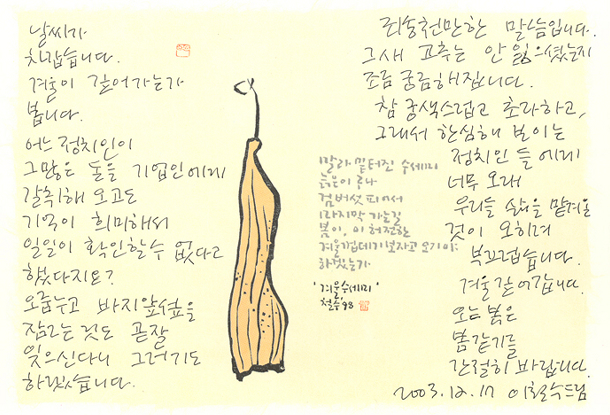 날씨가
차갑습니다.
겨울이 깊어가는가
봅니다.
어느 정치인이
그많은 돈을 기업인에게
갈취해 오고도
기억이 희미해서
일일이 확인할수 없다고
했다지요?
오줌누고 바지앞섶을
잠그는 것도 곧잘
잊으신다니 그러기도
하겠습니다.
말라 밑터진 수세미
늙은이 하나
검버섯 피어서
마지막 가는길
봄이, 이 허전한
겨울껍데기 보자고 오기야
하겠는가
'겨울수세미'
철수98
죄송천만한 말씀입니다.
그새 고추는 안 잃으셨는지
조금 궁금해집니다.
참 궁색스럽고 초라하고,
그래서 한심해 보이는
정치인 들에게
너무 오래
우리들 삶을 맡겨온
것이 오히려
부끄럽습니다.
겨울 깊어갑니다.
오는 봄은
봄같기를
간절히 바랍니다.
2003.12.17 이철수드림